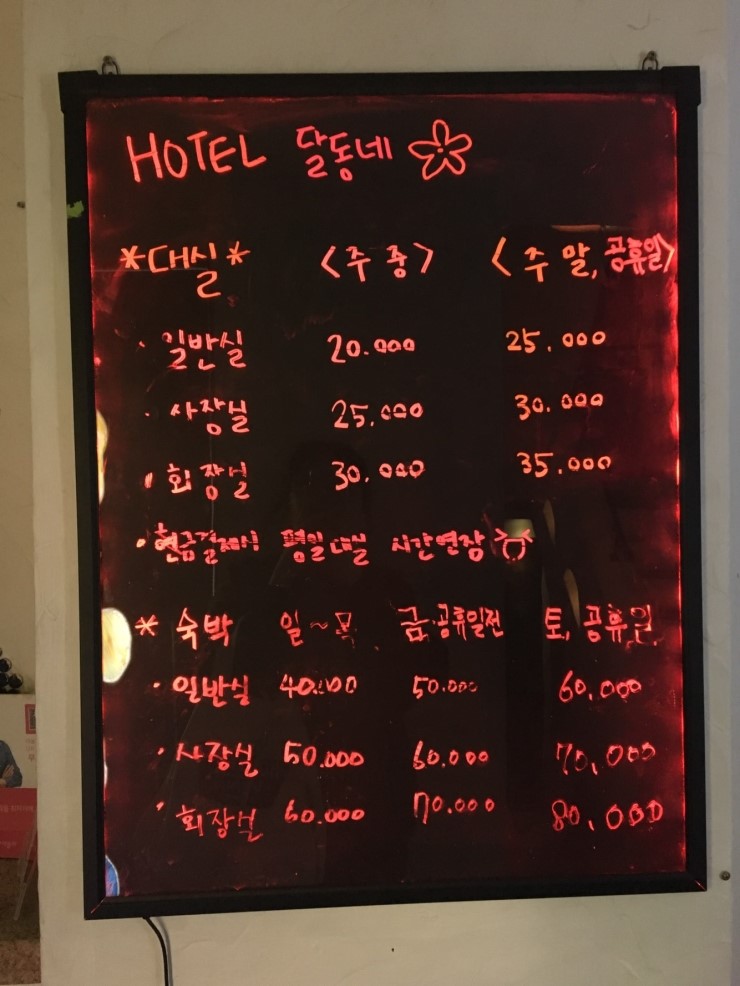 HOTEL 달동네
*대실* <주중> <주말, 공휴일>
· 일반실 20.000 25.000
· 사장실 25.000 30.000
· 회장실 30.000 35.000
· 현금결제시 평일대실 시간연장
* 숙박 일~목 금.공휴일전 토, 공휴일
· 일반실 40.000 50.000 60,000
· 사장실 50.000 60.000 70,000
· 회장실 60.000 70.000 80,000